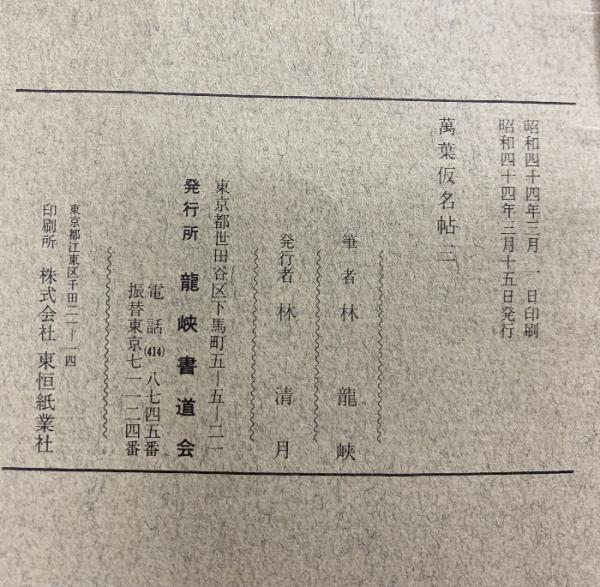 昭和四十四年三月 一 日印刷
昭和四十四年三月十五日発行
萬葉仮名帖 二
筆者 林 龍峡
発行者 林 清月
東京都世田谷区下馬町五―五―二一
発行所 龍峡書道会
電話(414)八七四五番
振替東京七一一二四番
東京都江東区千田二一―一四
印刷所 株式会社 東恒紙業社